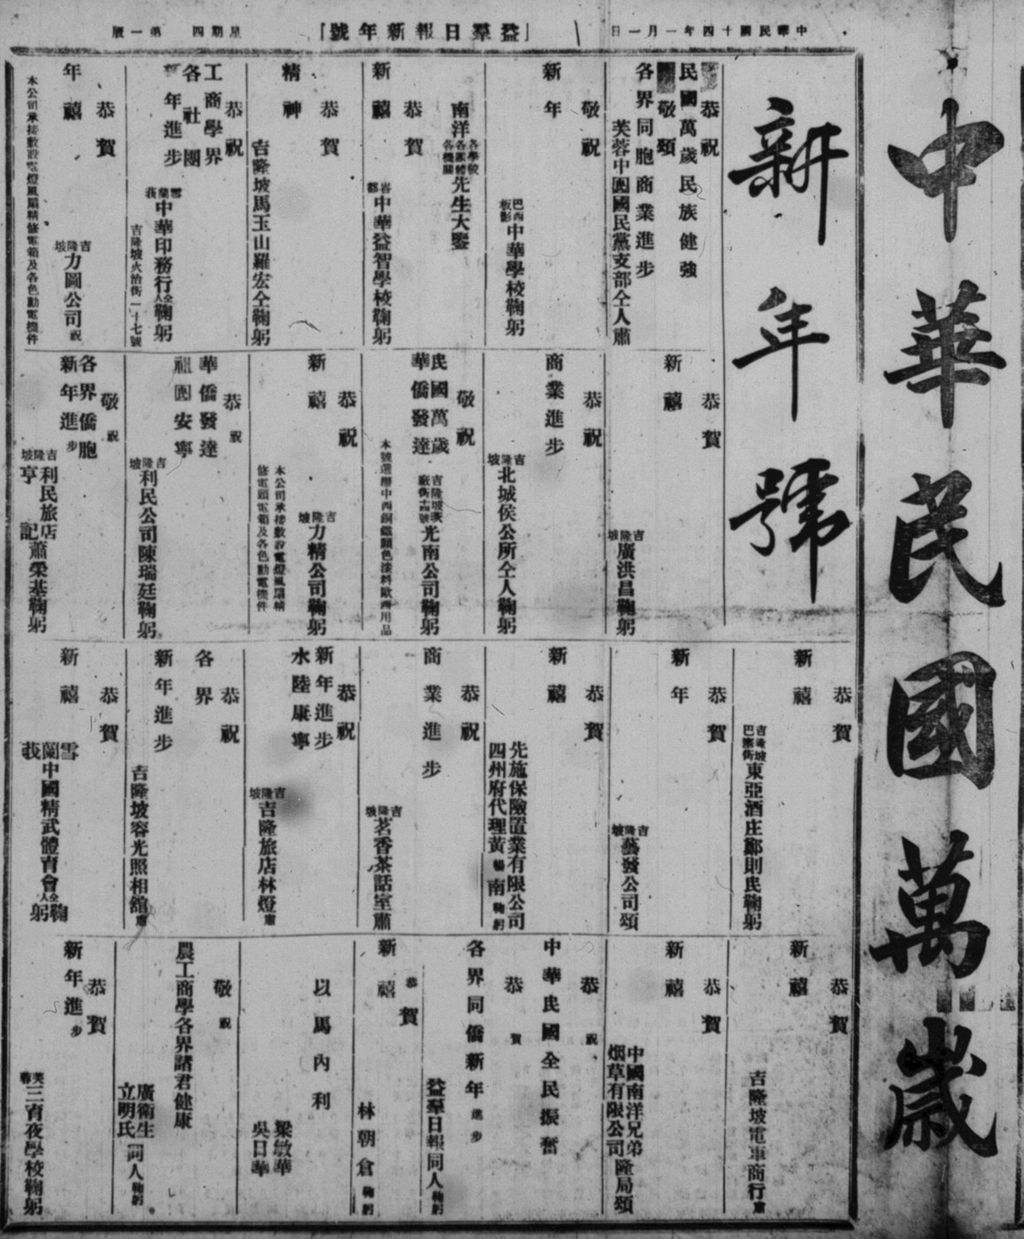 中華民國十四年一月一日
「益羣日報新年號」
星期四
第一版
中華民國萬歲
新年號
恭祝
民國萬歲民族健強
敬頌
各界同胞商業進步
芙蓉中國國民黨支部仝人肅
敬祝
新年
巴西板影中華學校鞠躬
南洋各學校各團體各機關先生大鑒
恭賀
新禧
岩都中華益智學校鞠躬
恭賀
精神
吉隆坡馬玉山羅宏仝鞠躬
恭祝
工商學界
各社團
新年進步
雪蘭莪中華印務行仝人鞠躬
吉隆坡火治街一十七號
恭賀
年禧
吉隆坡力圖公司祝
本公司承接敷設電燈風扇精修電箱及各色動電機件
恭賀
新禧
吉隆坡廣洪昌鞠躬
恭祝
商業進步
吉隆坡北城侯公所仝人鞠躬
敬祝
民國萬歲
華僑發達
光南公司鞠躬
恭祝
新禧
吉隆坡力精公司鞠躬
本公司承接敷設電燈風扇精
修電頭電箱及各色動電機件
恭祝
華僑發達
祖國安寧
吉隆坡利民公司陳瑞廷鞠躬
敬祝
各界僑胞
新年進步
吉隆坡利民旅店
亨記
蕭榮基鞠躬
恭賀
新禧
吉隆坡巴塞街東亞酒庄鄭則民鞠躬
恭賀
新年
吉隆坡藝發公司頌
恭賀
新禧
先施保險置業有限公司
四州府代理黃暢南鞠躬
恭祝
商業進步
吉隆坡茗香茶話室肅
恭祝
新年進步
水陸康寧
吉隆坡吉隆旅店林燈肅
恭祝
各界
新年進步
吉隆坡容光照相舘肅
恭賀
新禧
雪蘭莪中國精武體育會仝人鞠躬
恭賀
新禧
吉隆坡電車商行肅
恭賀
新禧
中國南洋兄弟
烟草有限公司
隆局頌
恭祝
中華民國全民振奮
恭賀
各界同僑新年進步
益羣日報同人鞠躬
恭賀
新禧
林朝倉鞠躬
以馬內利
梁敏華
吳日華
敬祝
農工商學各界諸君健康
廣衛生
立明氏
同人鞠躬
恭賀
新年進步
芙蓉三育夜學校鞠躬